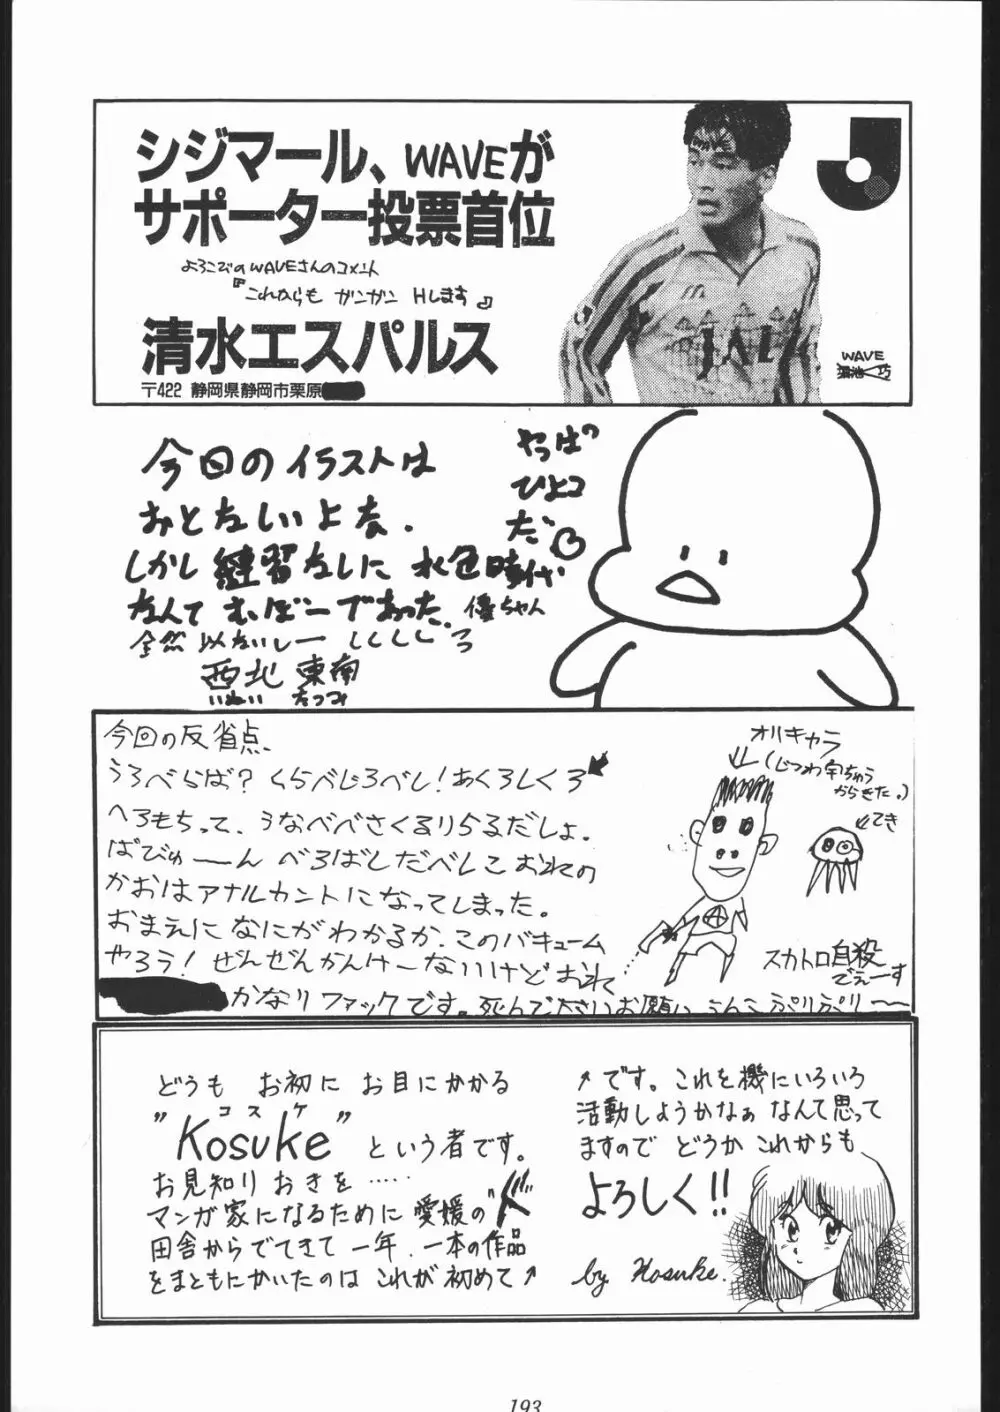 シジマール、WAVEが
サポーター投票首位
よろこびのWAVEさんのコメント
『これからも ガンガン Hします』
清水エスパルス
〒422 静岡県静岡市栗原
J
JAL
WAVE
今回のイラストは
おとなしいよな.
しかし練習なしに 水色時代
なんて むぼーであった. 優ちゃん
全然 似ないしー しくしくしく
西北 東南
やっぱり
ひよこ
だ
今回の反省点、
うろべらば? くらべじろべし! あくろしくろ
へろもちって、うなべべさくるりらるだしょ。
ばびゅーーん べろばしだべしこ おれの
かおはアナルカントになってしまった。
おまえになにがわかるか、このバキューム
やろう! ぜんぜんかんけーないけどおれ
かなりファックです。死んで下さいお願い うんこぷりぷりーー
オリキャラ
(じつわ宇ちゅう
からきた。)
てき
スカトロ自殺
でぇーす
どうも お初に お目にかかる
コスケ
"Kosuke" という者です。
お見知りおきを……
マンガ家になるために 愛媛の"ド"
田舎からでてきて 一年、一本の作品
をまともにかいたのは これが 初めて
です。これを機にいろいろ
活動しようかなぁ なんて思って
ますので どうか これからも
よろしく!!
by Kosuke.
193